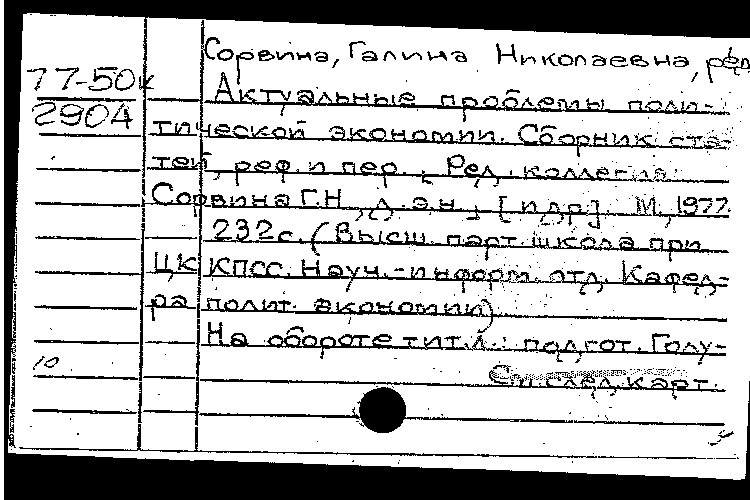 Сорвина, Галина Николаевна, ред.
77-50к
Актуальные проблемы поли-
2904
тической экономии. Сборник ста-
тей, реф. и пер. [Ред. коллегия:
Сорвина Г.Н., д.э.н., [и др.]. М., 1977
232с. (Высш. парт. школа при
ЦК КПСС. Науч.-информ. отд. Кафед-
ра полит. экономии)
На обороте тит.л.: подгот. Голу-
10
См. след. карт.